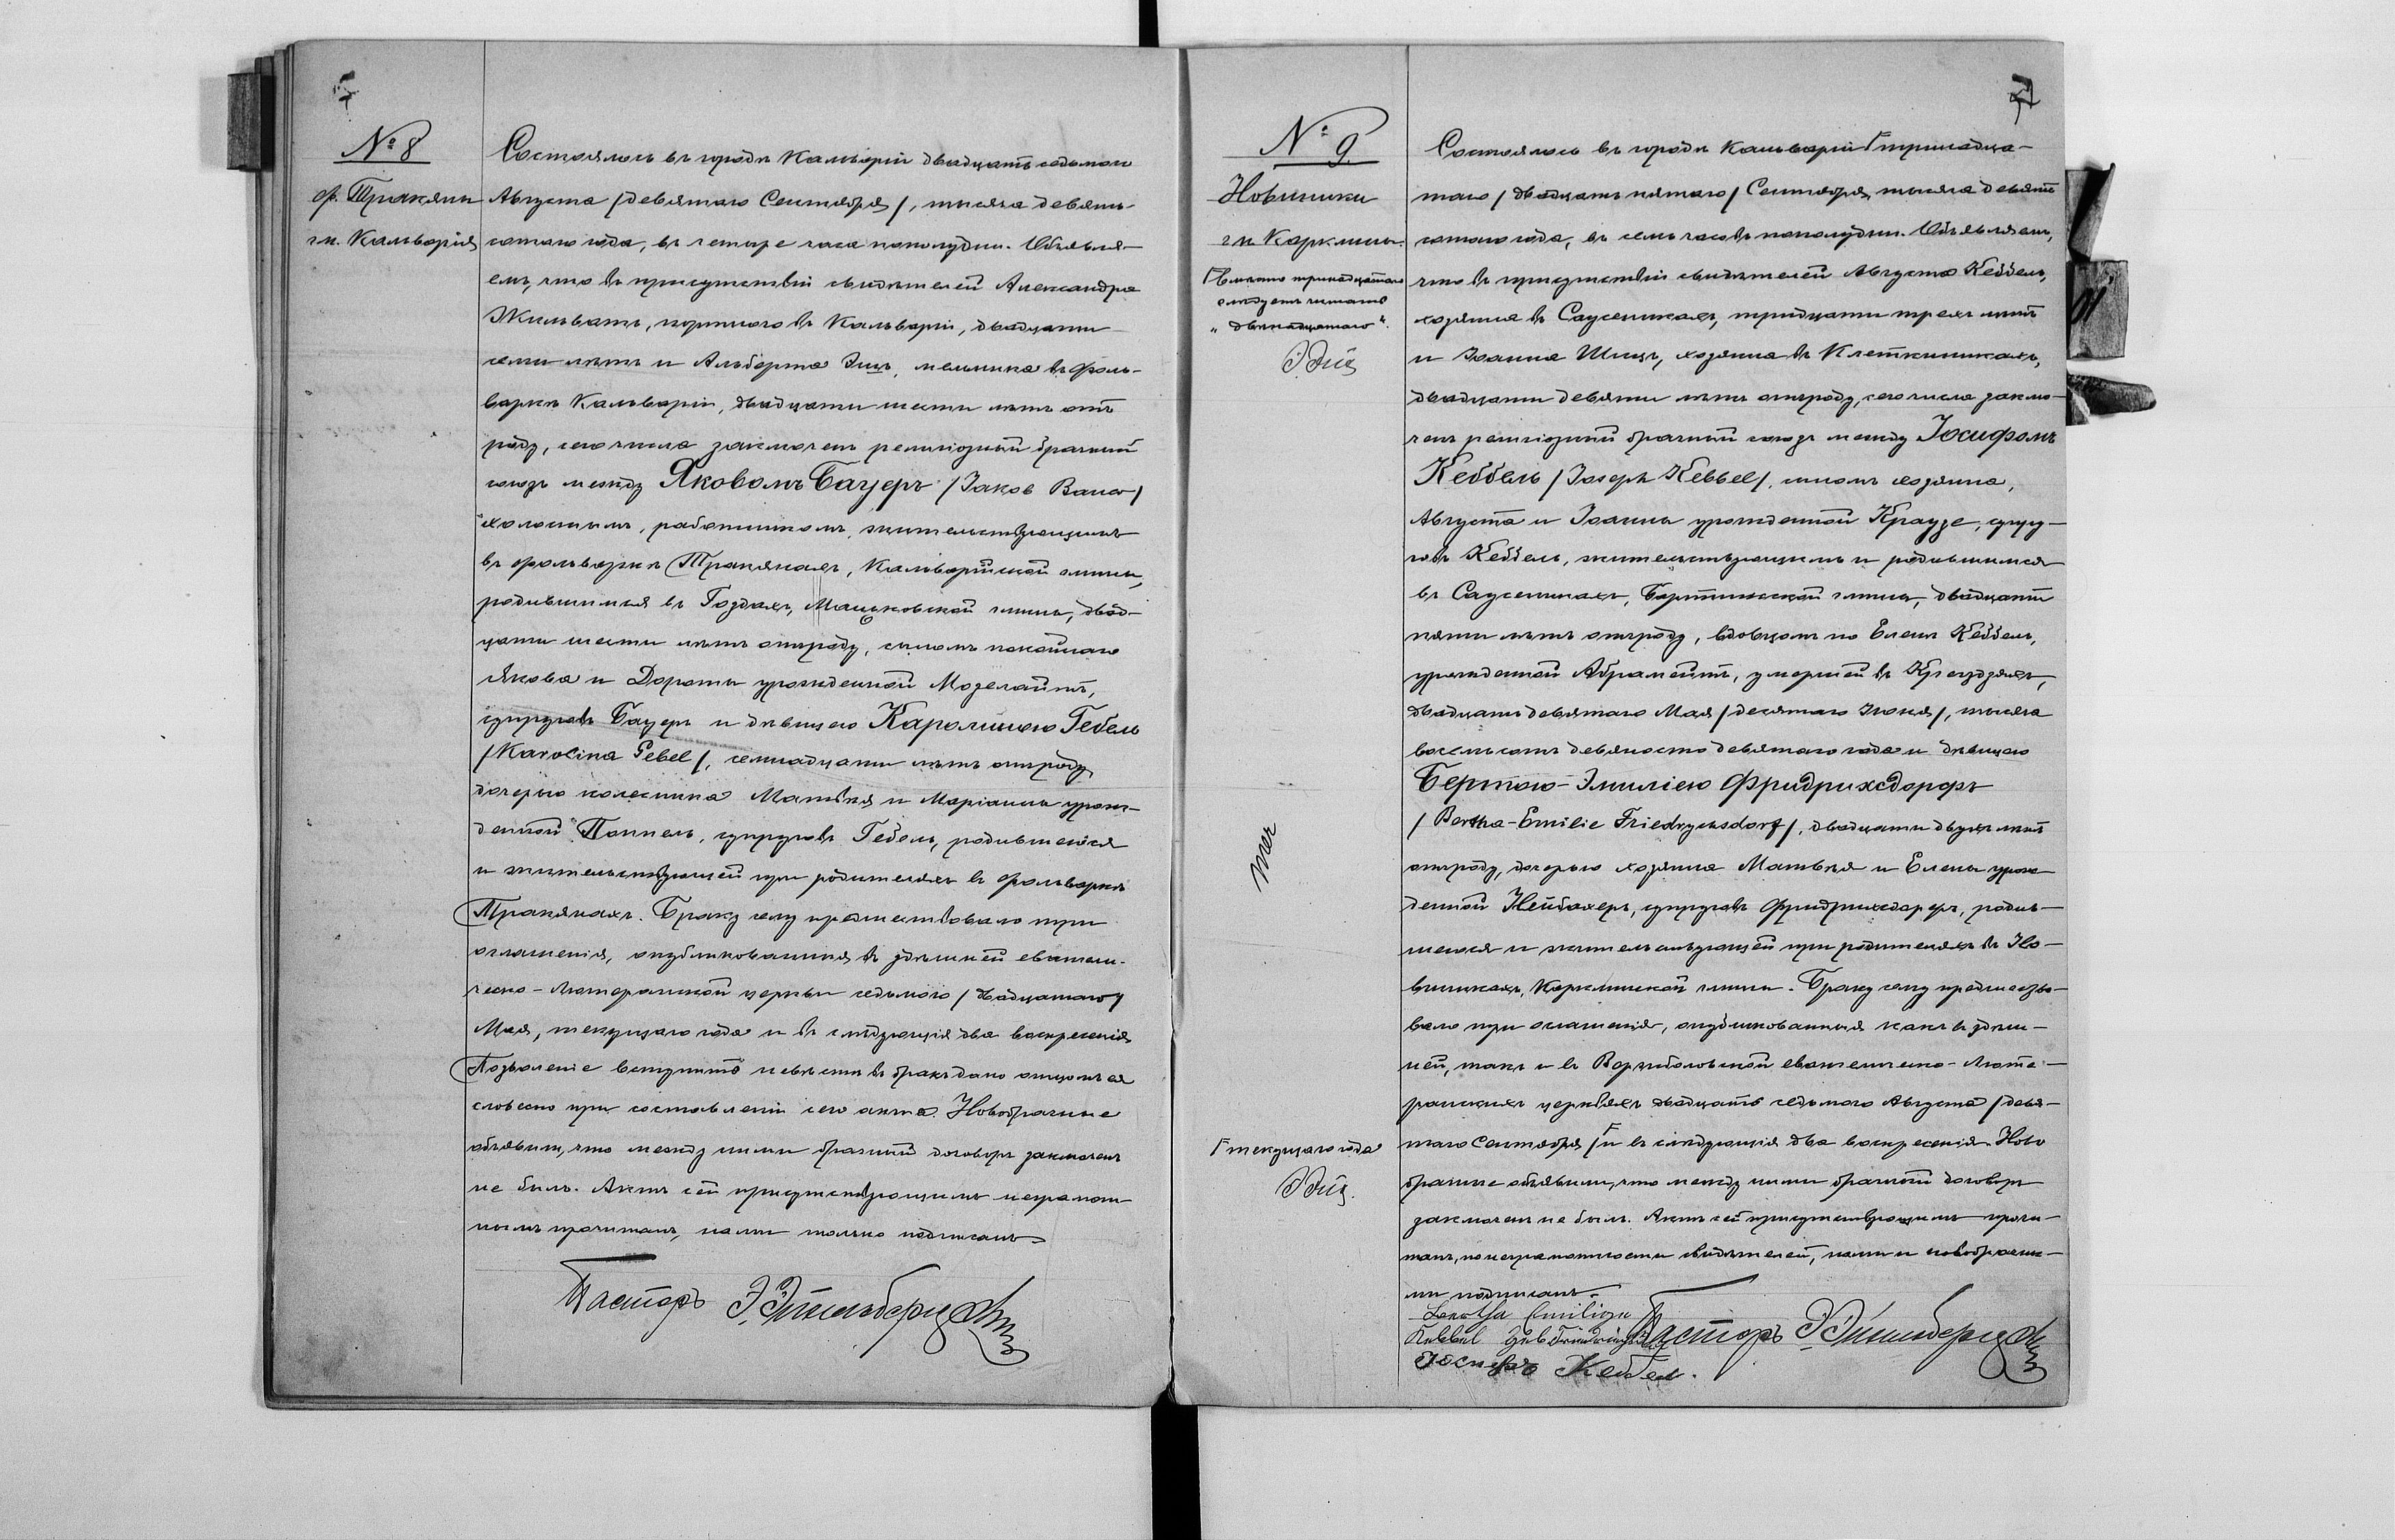 № 8
ф. Тракяны
гм. Кальварія
Состоялось въ городѣ Кальваріи двадцать седьмого
Августа /девятаго Сентября/, тысяча девять-
сотаго года, въ четыре часа пополудни. Объявля-
емъ, что въ присутствіи свидѣтелей Александра
портного въ Кальваріи, двадцати
семи лѣтъ и Альберта мельника въ фоль-
варкѣ Кальварія, двадцати шести лѣтъ отъ
роду, сего числа заключенъ религіозный брачный
союзъ между Яковомъ Бауеръ /Jakob Bauer/
холостымъ, работникомъ, жительствующимъ
въ фольваркѣ Тракянахъ, Кальварійской гмины,
родившимся въ Гоздахъ, гмины, двад-
цати шести лѣтъ отъ роду, сыномъ покойнаго
Якова и Дороты урожденной
супруговъ Бауеръ и дѣвицею Каролиною Гебель
/Karolina Gebel/, семнадцати лѣтъ отъ роду,
дочерью колесника Матвѣя и Маріанны урож-
денной супруговъ Гебель, родившейся
и жительствующей при родителяхъ въ фольваркѣ
Тракянахъ. Браку сему предшествовало три
оглашенія, опубликованныя въ здѣшней евангели-
ческо-Лютеранской церкви седьмого /двадцатаго/
Мая, текущаго года и въ слѣдующія два воскресенія.
Позволеніе вступить невѣстѣ въ бракъ дано отцомъ ея
словесно при составленіи сего акта. Новобрачные
объявили, что между ними брачный договоръ заключенъ
не былъ. Актъ сей присутствующимъ неграмот-
нымъ прочитанъ, нами только подписанъ.
Пасторъ
7
№ 9
Новиники
гм. Карклины.
Вмѣсто тринадцатаго
слѣдуетъ читать
„двѣнадцатаго“.
Состоялось въ городѣ Кальваріи тринадца-
таго /двадцать пятаго/ Сентября, тысяча девять
сотаго года, въ семь часовъ пополудни. Объявляемъ,
что въ присутствіи свидѣтелей Августа Кеббель,
хозяина въ Саусеникахъ, тридцати трехъ лѣтъ
и Іоанна хозяина въ Клеткиникахъ,
двадцати девяти лѣтъ отъ роду, сего числа заклю-
ченъ религіозный брачный союзъ между Іосифомъ
Кеббель /Joseph Kebbel/, сыномъ хозяина,
Августа и Іоанны урожденной Краузе, супру-
говъ Кеббель, жительствующимъ и родившимся
въ Саусеникахъ, гмины, двадцати
пяти лѣтъ отъ роду, вдовцомъ по Еленѣ Кеббель,
урожденной умершей въ
двадцать девятаго Мая /десятаго Іюня/, тысяча
восемьсотъ девяносто девятаго года и дѣвицею
Бертою-Эмиліею Фридрихсдорфъ
/Bertha-Emilie Friedrychsdorf/, двадцати двухъ лѣтъ
отъ роду, дочерью хозяина Матвѣя и Елены урож-
денной Нейбахеръ, супруговъ Фридрихсдорфъ, родив-
шеюся и жительствующей при родителяхъ въ Но-
виникахъ, Карклинской гмины. Браку сему предшество-
вало три оглашенія, опубликованныя какъ въ здѣш-
ней, такъ и въ Вержболовской евангелическо-Люте-
ранскихъ церквахъ двадцать седьмого Августа /девя-
таго Сентября/ и въ слѣдующія два воскресенія. Ново
брачные объявили, что между ними брачный договоръ
заключенъ не былъ. Актъ сей присутствующимъ прочи-
танъ, по неграмотности свидѣтелей, нами и новобрачны-
ми подписанъ.
текущаго года
Kebbel
Пасторъ
Іосифъ Кебел.